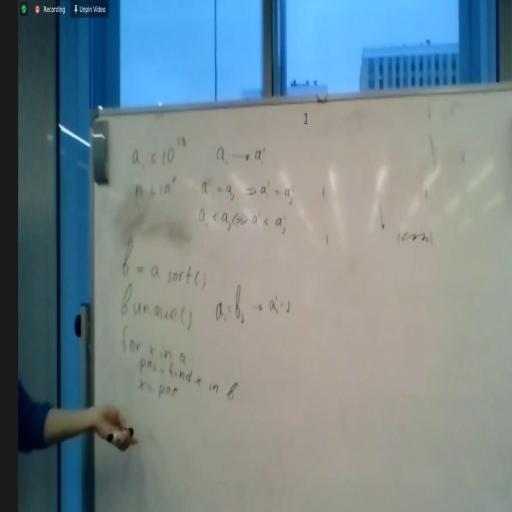 Recording Unpin Video
a_i ≤ 10^18 a_i → a'_i
a_i = a_j ⇒ a'_i = a'_j
a_i < a_j ⇔ a'_i < a'_j
b = a sort()
b unique() a_i = b_j → a'_i = j
for x in a:
pos = find x in b
x = pos